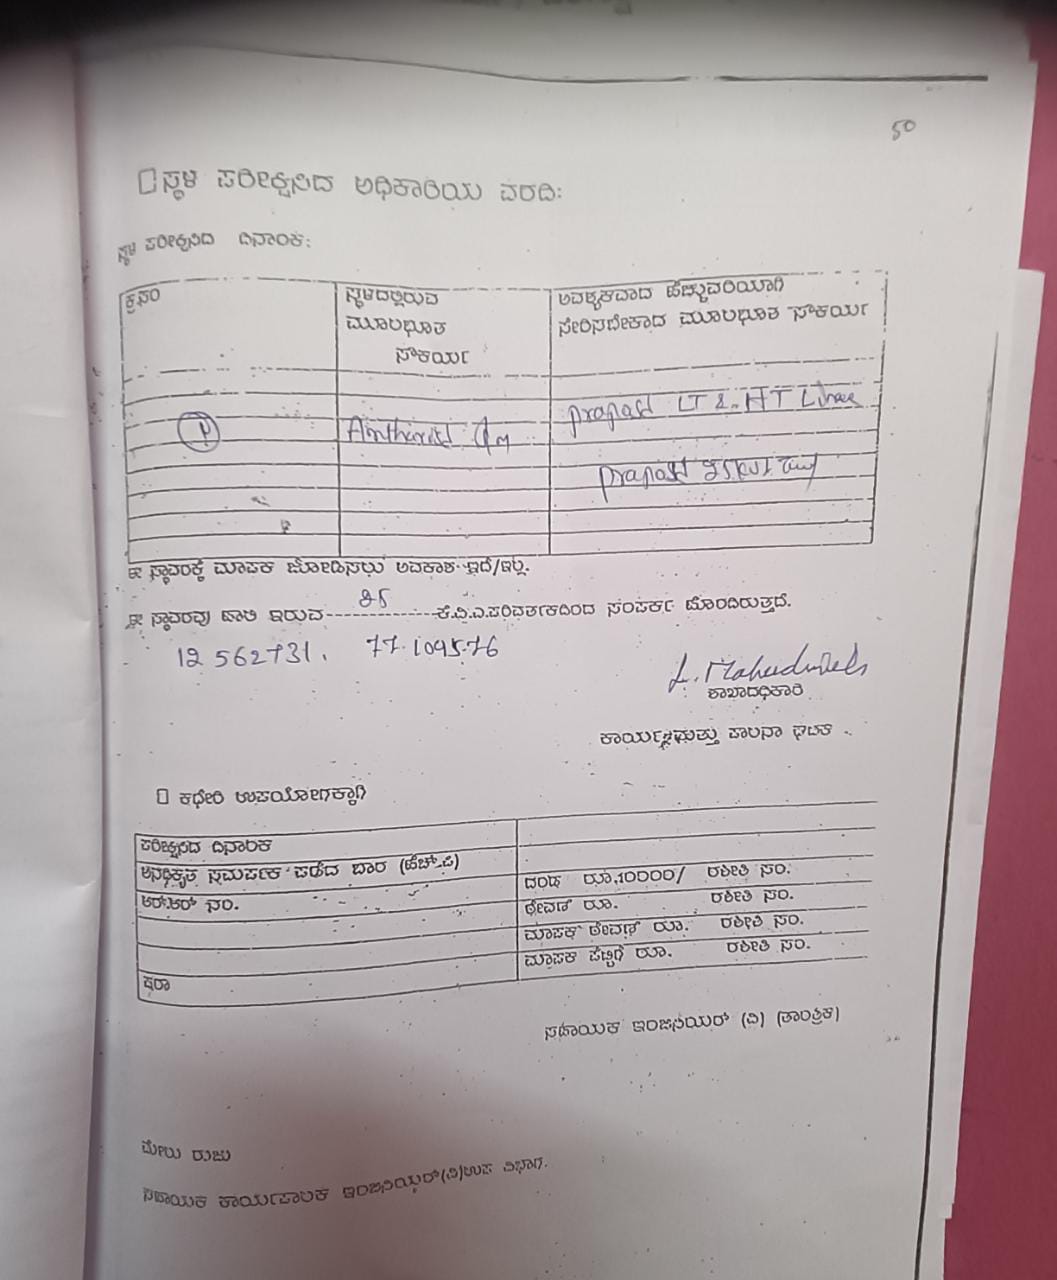 50
ಸ್ಥಳ ಪರೀಕ್ಷಿಸಿದ ಅಧಿಕಾರಿಯ ವರದಿ:
ಸ್ಥಳ ಪರೀಕ್ಷಿಸಿದ ದಿನಾಂಕ:
ಕ್ರ.ಸಂ
ಸ್ಥಳದಲ್ಲಿರುವ ಮೂಲಭೂತ ಸೌಕರ್ಯ
ಅವಶ್ಯಕವಾದ ಹೆಚ್ಚುವರಿಯಾಗಿ ಸೇರಿಸಬೇಕಾದ ಮೂಲಭೂತ ಸೌಕರ್ಯ
LT & HT
ಈ ಸ್ಥಾವರಕ್ಕೆ ಮಾಪಕ ಜೋಡಿಸಲು ಅವಕಾಶ ಇದೆ/ಇಲ್ಲ.
ಈ ಸ್ಥಾವರವು ಹಾಲಿ ಇರುವ---------------ಕೆ.ವಿ.ಎ.ಪರಿವರ್ತಕದಿಂದ ಸಂಪರ್ಕ ಹೊಂದಿರುತ್ತದೆ.
12 562731. 77.109576
ಶಾಖಾಧಿಕಾರಿ
ಕಾರ್ಯ ಮತ್ತು ಪಾಲನಾ ಘಟಕ
ಕಛೇರಿ ಉಪಯೋಗಕ್ಕಾಗಿ
ಪರೀಕ್ಷಿಸಿದ ದಿನಾಂಕ
ಅನಧಿಕೃತ ಸಮರ್ಪಕ ಪಡೆದ ಭಾರ (ಹೆಚ್.ಪಿ)
ದಂಡ ರೂ.10000/ ರಶೀತಿ ಸಂ.
ಆರ್.ಆರ್ ಸಂ.
ಠೇವಣಿ ರೂ. ರಶೀತಿ ಸಂ.
ಮಾಪಕ ಠೇವಣಿ ರೂ. ರಶೀತಿ ಸಂ.
ಮಾಪಕ ಪೆಟ್ಟಿಗೆ ರೂ. ರಶೀತಿ ಸಂ.
ಷರಾ
ಸಹಾಯಕ ಇಂಜಿನಿಯರ್ (ವಿ) (ತಾಂತ್ರಿಕ)
ಮೇಲು ರುಜು
ಸಹಾಯಕ ಕಾರ್ಯಪಾಲಕ ಇಂಜಿನಿಯರ್(ವಿ)ಉಪ ವಿಭಾಗ.